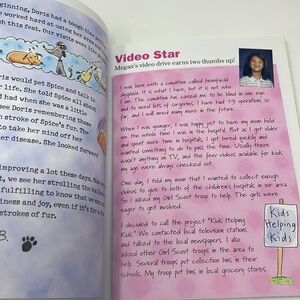 ginning, Doris had a tough time
worked hard at using her
this feat. Our visits were like
oris would pet Spice and talk to
she told Spice all about
had when she was a little
see Doris remembering them
stroke of Spice's fur. The
to take her mind off her
her disease. She looked forward
improving a lot these days. She
we see her strolling the halls
fulfilling to know that we can
iness and joy, even if it's for a
strokes of fur.
B.
Video Star
Megan's video drive earns two thumbs up!
I was born with a condition called hemifacial
displasia. It is what I have, but it is not who
I am. The condition has caused me to be blind in one eye
and to need lots of surgeries. I have had 19 operations so
far, and I will need many more in the future.
When I was younger, I was happy just to have my mom hold
me the whole time I was in the hospital. But as I got older
and spent more time in hospitals, I got bored easily and
wanted something to do to pass the time. Usually there
wasn't anything on TV, and the few videos available for kids
my age were always checked out.
One day I told my mom that I wanted to collect enough
videos to give to both of the children's hospitals in our area.
So I asked my Girl Scout troop to help. The girls were
eager to get involved.
I decided to call the project "Kids Helping
Kids." We contacted local television stations
and talked to the local newspapers. I also
asked other Girl Scout troops in the area to
help. Several troops put collection bins in their
schools. My troop put bins in local grocery stores.
Kids
Helping
Kids